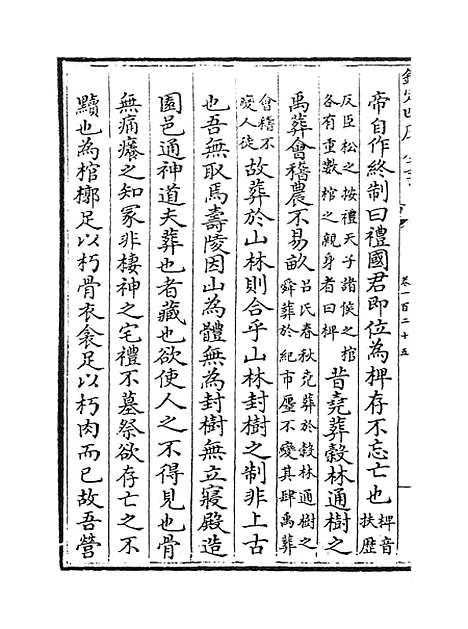 卷一百二十五
帝自作終制曰禮國君即位為椑存不忘亡也椑音扶歴
反臣松之按禮天子諸侯之棺各有重數棺之親身者曰椑昔堯葬穀林通樹之
禹葬會稽農不易畝吕氏春秋堯葬於穀林通樹之舜葬於紀市廛不變其肆禹葬
會稽不變人徒故葬於山林則合乎山林封樹之制非上古
也吾無取焉壽陵因山為體無為封樹無立寢殿造
園邑通神道夫葬也者藏也欲使人之不得見也骨
無痛癢之知冢非棲神之宅禮不墓祭欲存亡之不
黷也為棺槨足以朽骨衣衾足以朽肉而已故吾營